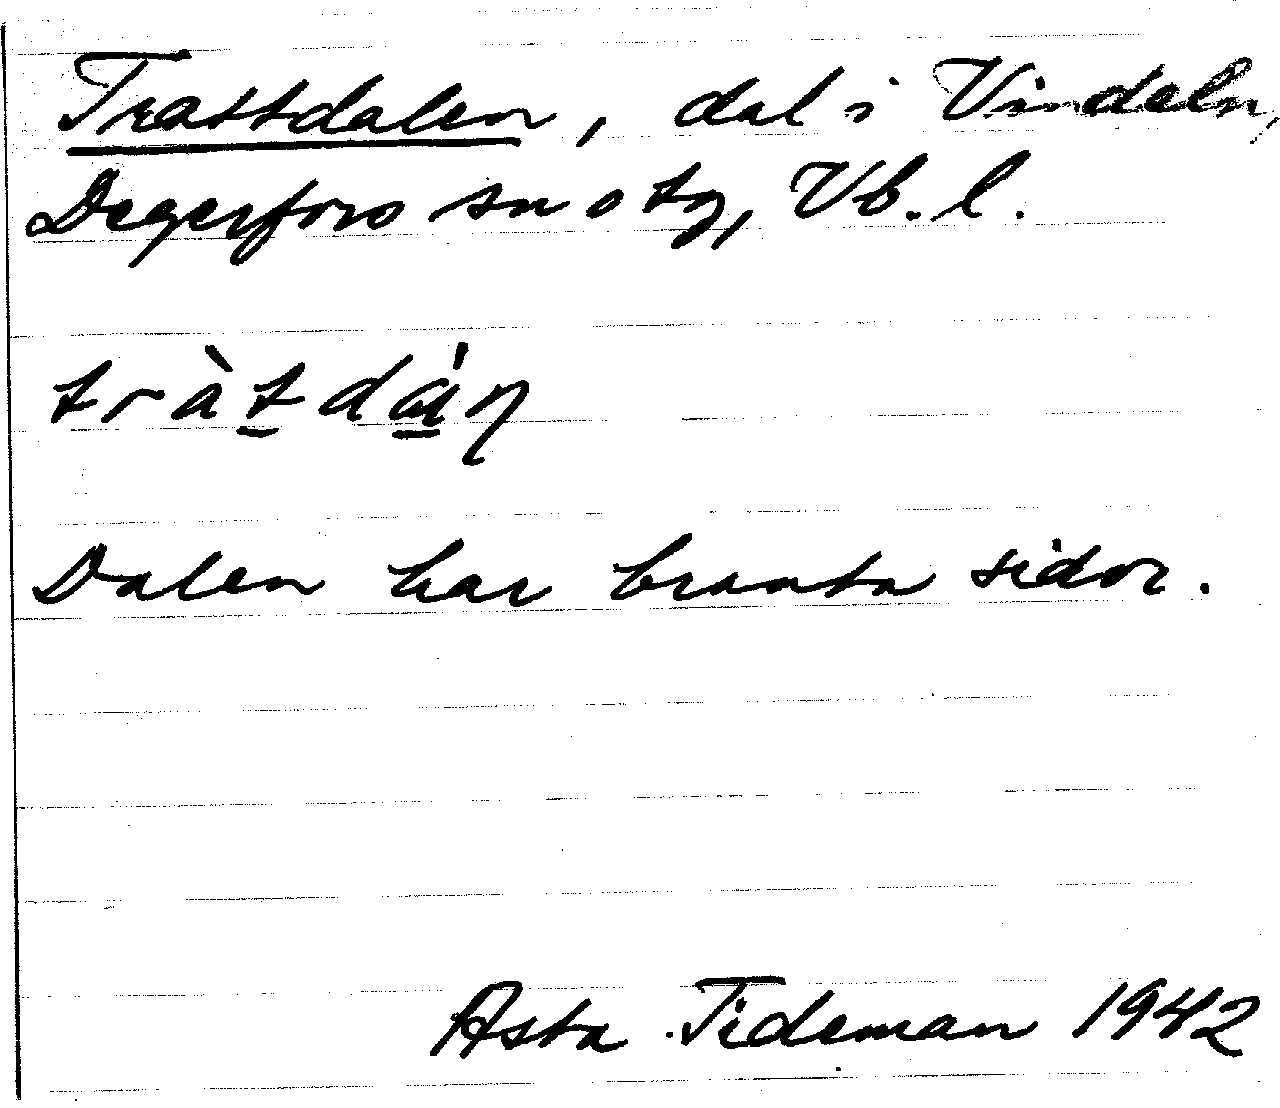 Trattdalen, dal i Vindeln,
Degerfors sn o tg, Vb. l.
tràt̲dά̲ɳ
Dalen har branta sidor.
Asta Tideman 1942